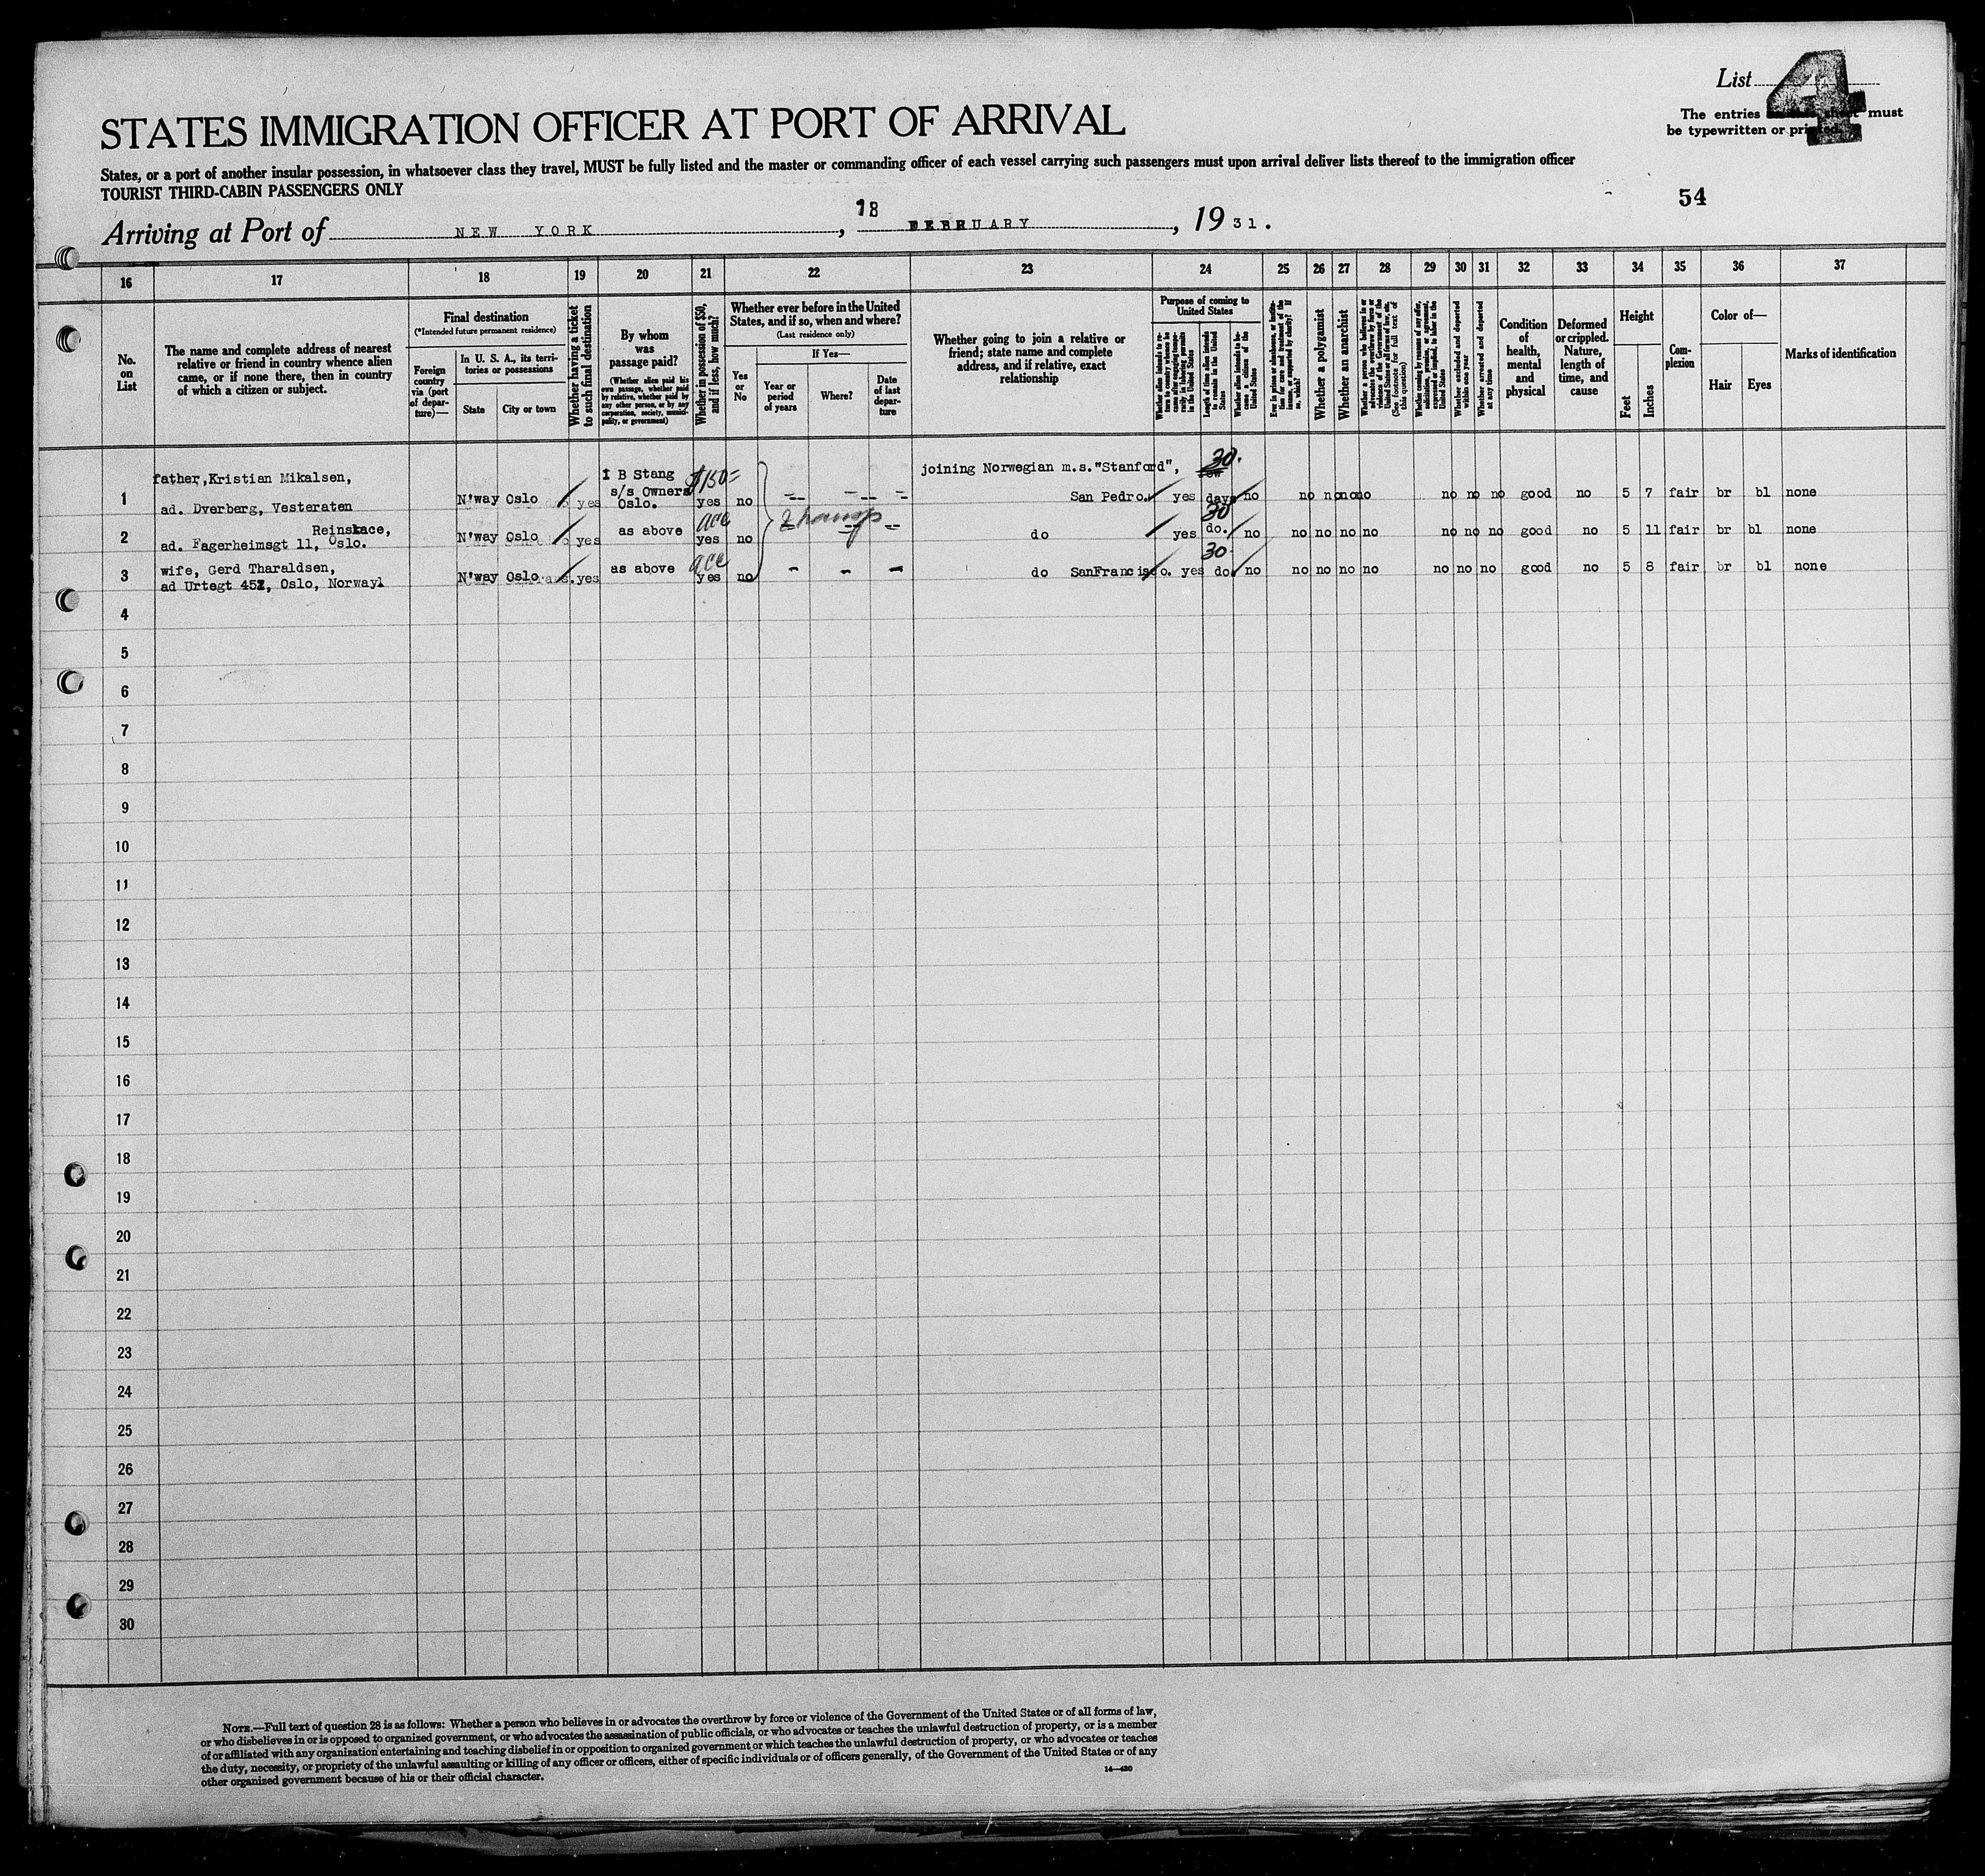 List 4
STATES IMMIGRATION OFFICER AT PORT OF ARRIVAL
The entries on this sheet must
be typewritten or printed.
States, or a port of another insular possession, in whatsoever class they travel, MUST be fully listed and the master or commanding officer of each vessel carrying such passengers must upon arrival deliver lists thereof to the immigration officer
TOURIST THIRD-CABIN PASSENGERS ONLY
54
Arriving at Port of NEW YORK, 18 FEBRUARY, 19 31.
16 17 18 19 20 21 22 23 24 25 26 27 28 29 30 31 32 33 34 35 36 37
No.
on
List
The name and complete address of nearest
relative or friend in country whence alien
came, or if none there, then in country
of which a citizen or subject.
Final destination
(*Intended future permanent residence)
Foreign
country
via (port
of depar-
ture)—
In U. S. A., its terri-
tories or possessions
State
City or town
Whether having a ticket
to such final destination
By whom
was
passage paid?
(Whether alien paid his
own passage, whether paid
by relative, whether paid by
any other person, or by any
corporation, society, munici-
pality, or government)
Whether in possession of $50,
and if less, how much?
Whether ever before in the United
States, and if so, when and where?
(Last residence only)
Yes
or
No
If Yes—
Year or
period
of years
Where?
Date
of last
depar-
ture
Whether going to join a relative or
friend; state name and complete
address, and if relative, exact
relationship
Purpose of coming to
United States
Whether alien intends to re-
turn to country whence he
came after engaging tempo-
rarily in laboring pursuits
in the United States
Length of time alien intends
to remain in the United
States
Whether alien intends to be-
come a citizen of the
United States
Ever in prison or almshouse, or institu-
tion for care and treatment of the
insane, or supported by charity? If
so, which?
Whether a polygamist
Whether an anarchist
Whether a person who believes in or
advocates the overthrow by force or
violence of the Government of the
United States or all forms of law, etc.
(See footnote for full text of
this question)
Whether coming by reasons of any offer,
solicitation, promise, or agreement,
expressed or implied, to labor in the
United States
Whether excluded and deported
within one year
Whether arrested and deported
at any time
Condition
of
health,
mental
and
physical
Deformed
or crippled.
Nature,
length of
time, and
cause
Height
Feet
Inches
Com-
plexion
Color of—
Hair
Eyes
Marks of identification
father, Kristian Mikalsen, I B Stang $150= joining Norwegian m.s."Stanford", 30.
1 ad. Dverberg, Vesteraten N'way Oslo yes s/s Owners Oslo. yes no -- -- - San Pedro. yes days no no no no no no no no good no 5 7 fair br bl none
Reinskace, acc 30
2 ad. Fagerheimsgt 11, Oslo. N'way Oslo yes as above yes no -- -- do yes do. no no no no no no no no good no 5 11 fair br bl none
wife, Gerd Tharaldsen, acc 30.
3 ad Urtegt 452, Oslo, Norway N'way Oslo yes as above yes no - - - do SanFrancisco. yes do no no no no no no no no good no 5 8 fair br bl none
4
5
6
7
8
9
10
11
12
13
14
15
16
17
18
19
20
21
22
23
24
25
26
27
28
29
30
NOTE.—Full text of question 28 is as follows: Whether a person who believes in or advocates the overthrow by force or violence of the Government of the United States or of all forms of law,
or who disbelieves in or is opposed to organized government, or who advocates the assassination of public officials, or who advocates or teaches the unlawful destruction of property, or is a member
of or affiliated with any organization entertaining and teaching disbelief in or opposition to organized government or which teaches the unlawful destruction of property, or who advocates or teaches
the duty, necessity, or propriety of the unlawful assaulting or killing of any officer or officers, either of specific individuals or of officers generally, of the Government of the United States or of any
other organized government because of his or their official character.
14—430